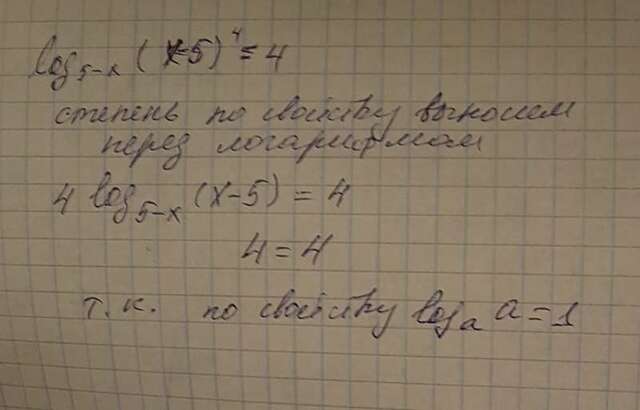 log₅₋ₓ (x-5)⁴ = 4
степень по свойству выносим
перед логарифмом
4 log₅₋ₓ (x-5) = 4
4 = 4
т.к. по свойству logₐ a = 1